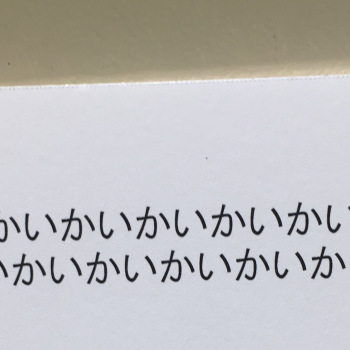 かいかいかいかいかい
いかいかいかいかいか